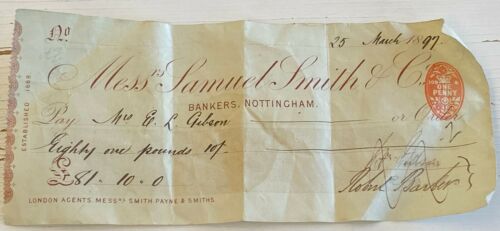 No
25 March 1897.
Messrs Samuel Smith & Co.
BANKERS, NOTTINGHAM.
ONE
PENNY
Pay Mrs E L Gibson or Order
Eighty one pounds 10/-
£81-10-0
Barber
LONDON AGENTS. MESSRS SMITH. PAYNE & SMITHS.
ESTABLISHED 1688